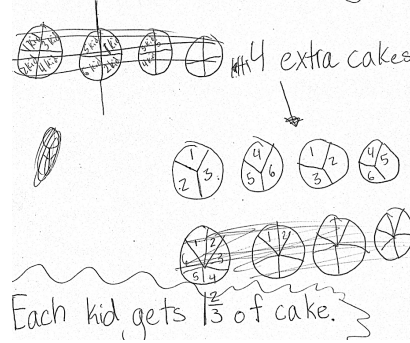 4 extra cakes
1 2 3
4 5 6
1 2 3
4 5 6
1 2 3 4 5
1 2
Each kid gets 1 2/3 of cake.